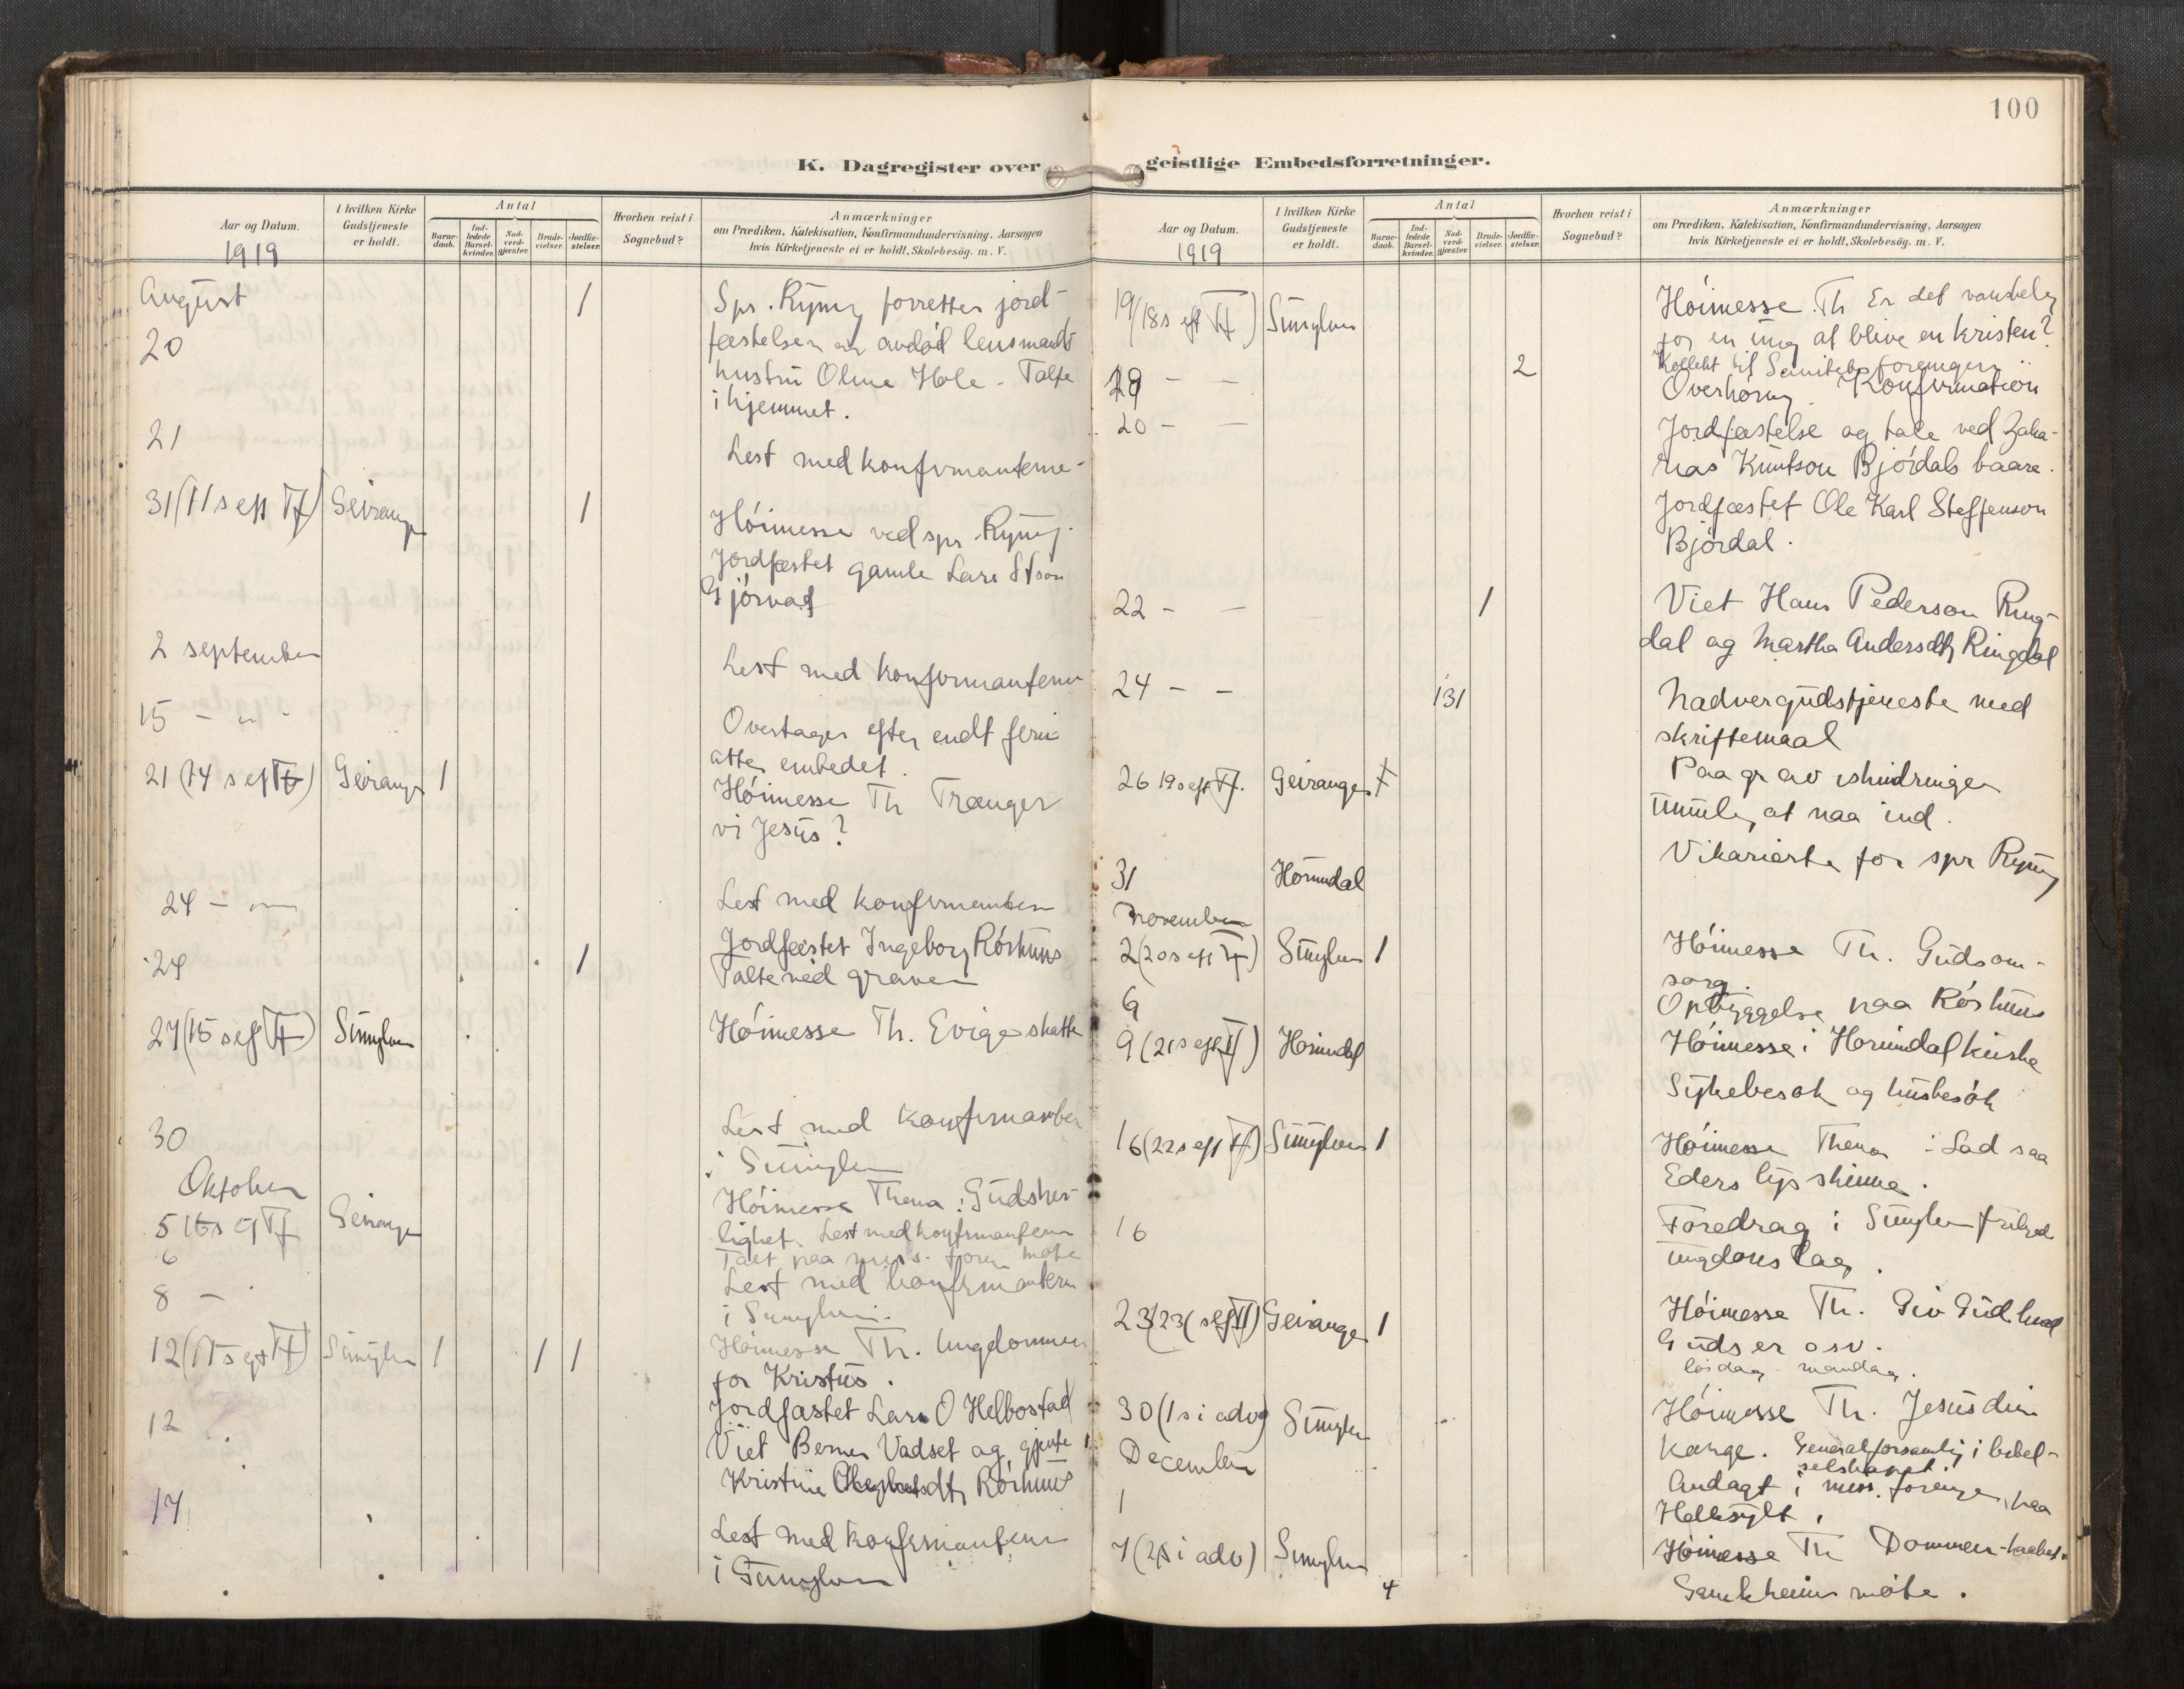 100
K. Dagregister over geistlige Embedsforretninger.
Aar og Datum.
1919
I hvilken Kirke
Gudstjeneste
er holdt.
Antal
Barne-
daab.
Ind-
ledede
Barsel-
kvinder.
Nad-
verd-
gjæster.
Brude-
vielser.
Jordfæ-
stelser.
Hvorhen reist i
Sognebud?
Anmærkninger
om Prædiken, Katekisation, Konfirmandundervisning, Aarsagen
hvis Kirketjeneste ei er holdt, Skolebesög. m. V.
August
20
1
Spr. Ryning forretter jord-
fæstelsen av avdød lensmands
hustru Oline Hole - Talte
i hjemmet.
21
Lest med konfirmanterne
31 (11 s eft Tf) Geiranger 1
Höimesse ved spr. Ryning.
Jordfæstet gamle Lars
Gjörvad
2 september
Lest med konfirmantene
15
Overtager efter endt ferie
atter embedet.
21 (14 s eft Tf) Geiranger 1
Höimesse Th Trænger
vi Jesus?
24
Lest med konfirmantene
24 1
Jordfæstet Ingeborg Röshuus
Talte ved graven
27 (15 s eft Tf) Sunylven
Höimesse Th. Evige skatte
30
Lest med konfirmanter
i Sunylven
Oktober
5 16 s eft Tf Geiranger
Höimesse Thema: Guds her-
lighet. Lest med konfirmantene
6
Talt paa miss. foren møte
8 -
Lest med konfirmantene
i Sunylven.
12 (17 s eft Tf) Sunylven 1 1 1
Höimesse Th. Ungdommen
for Kristus.
12
Jordfæstet Lars O Helbostad
Viet Berner Vadset og gjente
Kristine Röshuus
17
Lest med konfirmantene
i Sunylven
Aar og Datum.
1919
I hvilken Kirke
Gudstjeneste
er holdt.
Antal
Barne-
daab.
Ind-
ledede
Barsel-
kvinder.
Nad-
verd-
gjæster.
Brude-
vielser.
Jordfæ-
stelser.
Hvorhen reist i
Sognebud?
Anmærkninger
om Prædiken, Katekisation, Konfirmandundervisning, Aarsagen
hvis Kirketjeneste ei er holdt, Skolebesög. m. V.
19 (18 s eft Tf) Sunylven
Höimesse. Th Er det vanskelig
for en ung at blive en kristen?
Kollekt til Sanitetsforeningen
19 - - 2
Overhöring. Konfirmation
20 - -
Jordfæstelse og tale ved Zaka-
rias Knutson Björdals baare.
Jordfæstet Ole Karl Steffenson
Björdal.
22 - - 1
Viet Hans Pederson Ring-
dal og Martha Andersdtr Ringdal
24 - - 131
Nadvergudstjeneste med
skriftemaal
26 19 s eft Tf. Geiranger
Paa gr av ishindringer
umulig at naa ind.
31 Horundal
Vikarierte for spr Ryning
November
2 (20 s eft Tf) Sunylven 1
Höimesse Th. Guds om-
sorg.
6
Opbyggelse paa Röshuus
9 (21 s eft Tf) Horundal
Höimesse i Horundal kirke
Sykebesøk og husbesök
16 (22 s eft Tf) Sunylven 1
Höimesse Thema : Lad saa
Eders lys skinne.
16
Foredrag i Sunylven frilynd
ungdomslag.
23 (23 s eft Tf) Geiranger 1
Höimesse Th. Giv Gud hvad
Guds er osv.
lördag - mandag.
30 (1 s i adv) Sunylven
Höimesse Th. Jesus din
konge. Generalforsamling i bibel-
selskapet.
December
1
Andagt i miss. foreningen paa
Hellesylt.
7 (2 s i adv) Sunylven
Höimesse Th Dommen - haabet.
4
Samkheims møte.